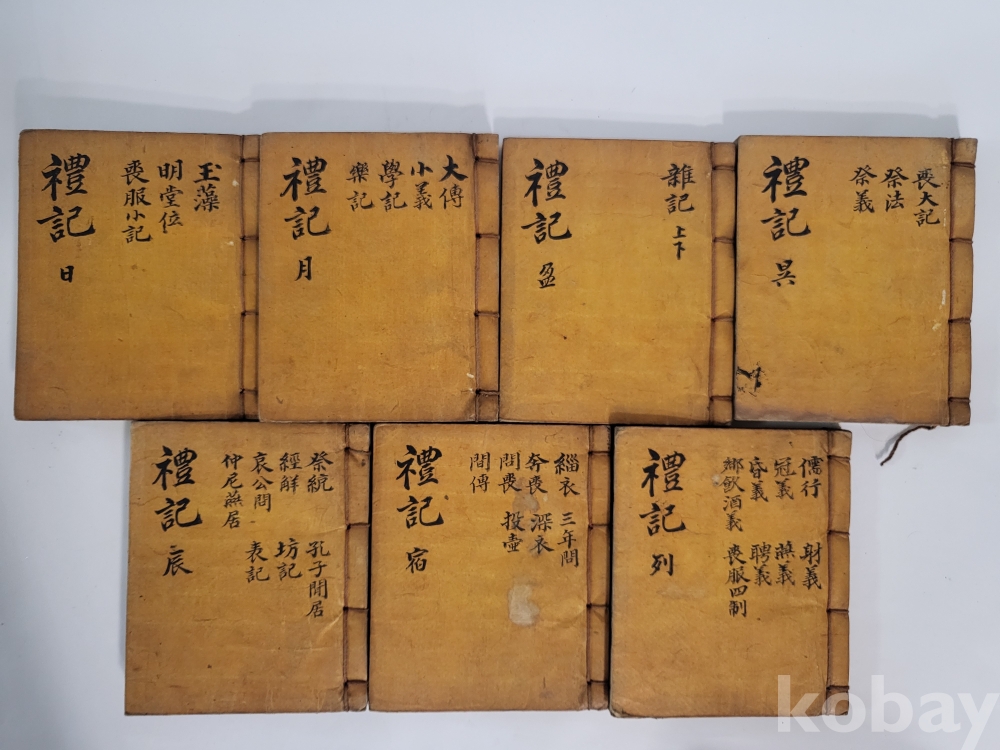 禮記 日
玉藻
明堂位
喪服小記
禮記 月
大傳
小義
學記
樂記
禮記 盈
雜記 上下
禮記 昃
喪大記
祭法
祭義
禮記 辰
祭統 孔子閒居
經解 坊記
哀公問 表記
仲尼燕居
禮記 宿
緇衣 三年問
奔喪 深衣
問喪 投壺
間傳
禮記 列
儒行 射義
冠義 燕義
昏義 聘義
鄕飮酒義 喪服四制
kobay